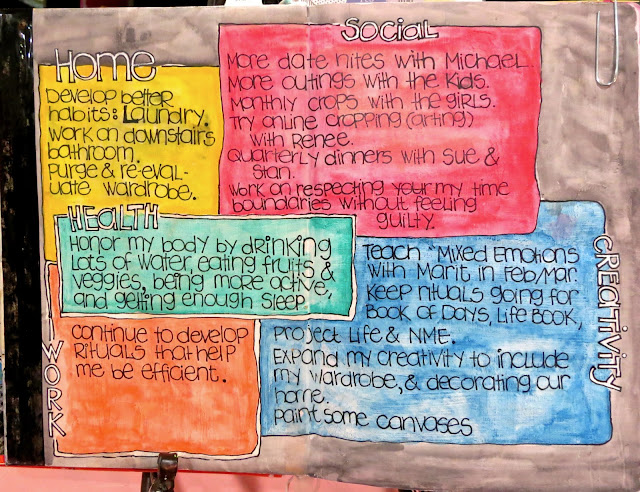 Home
Develop better
habits: Laundry.
Work on downstairs
bathroom.
Purge & re-eval-
uate wardrobe.
Social
More date nites with Michael.
More outings with the kids.
Monthly crops with the girls.
Try online cropping (arting)
with Renee.
Quarterly dinners with Sue &
Stan.
Work on respecting your my time
boundaries without feeling
guilty.
HEALTH
Honor my body by drinking
lots of water, eating fruits &
veggies, being more active,
and getting enough sleep.
CREATIVITY
Teach "Mixed Emotions
with Marit in Feb/Mar.
Keep rituals going for
Book of Days, Life Book,
Project Life & NME.
Expand my creativity to include
my wardrobe, & decorating our
home.
Paint some canvases
WORK
Continue to develop
Rituals that help
me be efficient.